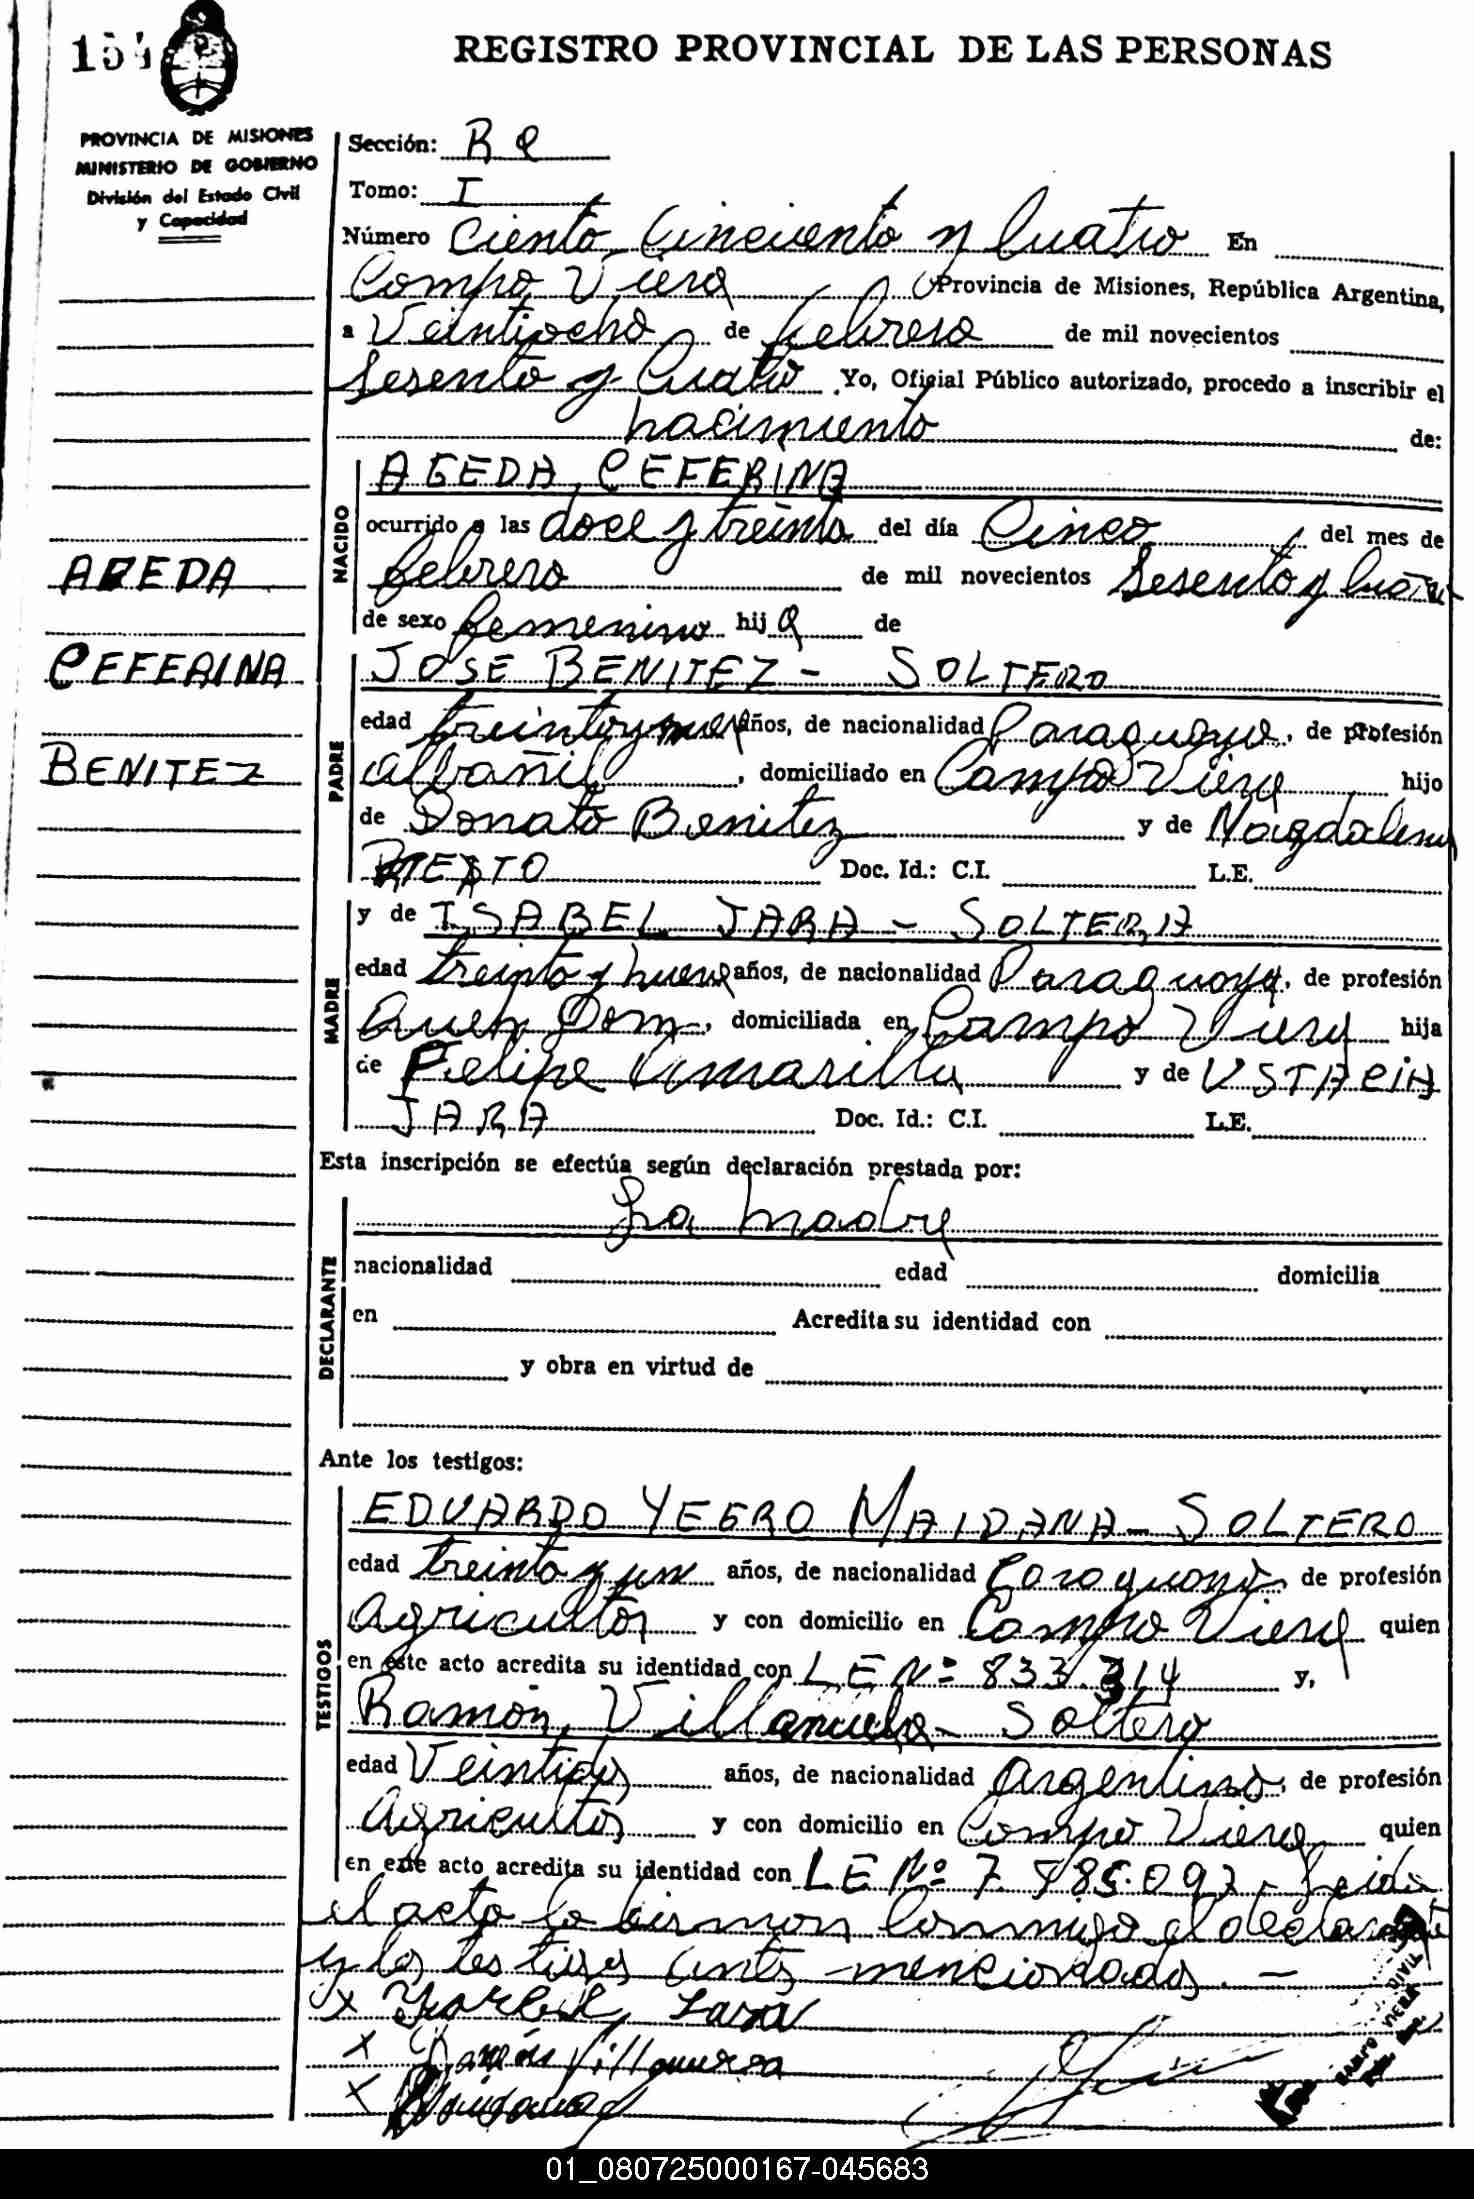 154
REGISTRO PROVINCIAL DE LAS PERSONAS
PROVINCIA DE MISIONES
MINISTERIO DE GOBIERNO
División del Estado Civil
y Capacidad
Sección: B e
Tomo: I
Número Ciento Cincuenta y Cuatro En
Campo Viera Provincia de Misiones, República Argentina,
a Veintiocho de febrero de mil novecientos
Sesenta y Cuatro Yo, Oficial Público autorizado, procedo a inscribir el
nacimiento de:
NACIDO
AGEDA CEFERINA
ocurrido a las doce y treinta del día Cinco del mes de
febrero de mil novecientos Sesenta y Cuatro
de sexo femenino hija de
AGEDA
CEFERINA
BENITEZ
PADRE
JOSE BENITEZ - SOLTERO
edad treinta y años, de nacionalidad Paraguaya, de profesión
albañil, domiciliado en Campo Viera hijo
de Donato Benitez y de Magdalena
Doc. Id.: C.I. L.E.
MADRE
y de ISABEL JARA - SOLTERA
edad treinta y nueve años, de nacionalidad Paraguaya, de profesión
Queh. Dom., domiciliada en Campo Viera hija
de Felipe Amarilla y de USTACIA
JARA Doc. Id.: C.I. L.E.
Esta inscripción se efectúa según declaración prestada por:
DECLARANTE
La madre
nacionalidad edad domicilia
en Acredita su identidad con
y obra en virtud de
Ante los testigos:
TESTIGOS
EDUARDO YEGRO MAIDANA - SOLTERO
edad treinta y un años, de nacionalidad Paraguaya, de profesión
Agricultor y con domicilio en Campo Viera quien
en este acto acredita su identidad con L E Nº 833.314 y,
Ramón Villanueva - Soltero
edad Veintidos años, de nacionalidad Argentino, de profesión
Agricultor y con domicilio en Campo Viera quien
en este acto acredita su identidad con L E Nº 7.885.097. Leida
el acta la firman conmigo el declarante
y los testigos antes mencionados. -
x Isabel Jara
x Ramón Villanueva
x Maidana
CAMPO VIERA
01_080725000167-045683